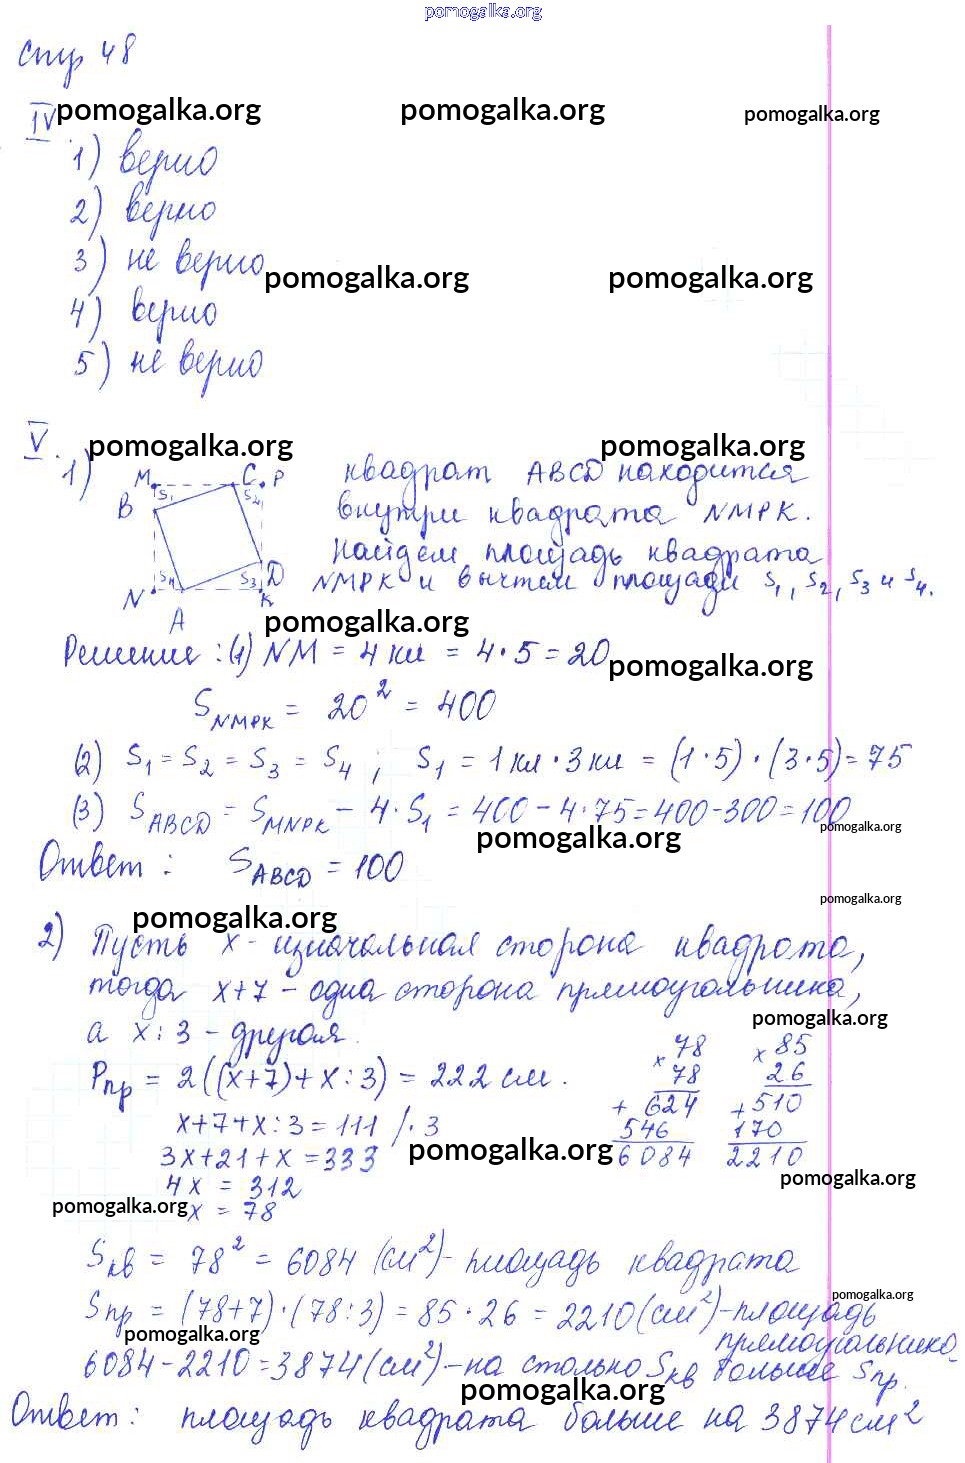 pomogalka.org
стр 48
pomogalka.org pomogalka.org pomogalka.org
IV.
1) верно
2) верно
3) не верно
pomogalka.org pomogalka.org
4) верно
5) не верно
V. pomogalka.org pomogalka.org
1) M C P квадрат ABCD находится
S1 S2
B внутри квадрата NMPK.
Найдем площадь квадрата
S4 S3 D NMPK и вычтем площади S1, S2, S3 и S4.
N K
A pomogalka.org
Решение: (1) NM = 4 кл = 4 · 5 = 20
pomogalka.org
S NMPK = 20² = 400
(2) S1 = S2 = S3 = S4 ; S1 = 1 кл · 3 кл = (1 · 5) · (3 · 5) = 75
(3) S ABCD = S MNPK - 4 · S1 = 400 - 4 · 75 = 400 - 300 = 100
pomogalka.org pomogalka.org
Ответ : S ABCD = 100
pomogalka.org
pomogalka.org
2) Пусть x - изначальная сторона квадрата,
тогда x+7 - одна сторона прямоугольника,
pomogalka.org
а x : 3 - другая.
Pпр = 2((x+7) + x : 3) = 222 см.
x+7+x : 3 = 111 / · 3
3x+21+x = 333
4x = 312
x = 78
× 78
78
+ 624
546
6084
× 85
26
+ 510
170
2210
pomogalka.org
pomogalka.org
pomogalka.org
Sкв = 78² = 6084 (см²) - площадь квадрата
pomogalka.org
Sпр = (78+7) · (78:3) = 85 · 26 = 2210 (см²) - площадь
pomogalka.org прямоугольника
6084 - 2210 = 3874 (см²) - на столько Sкв больше Sпр.
pomogalka.org
Ответ: площадь квадрата больше на 3874 см²